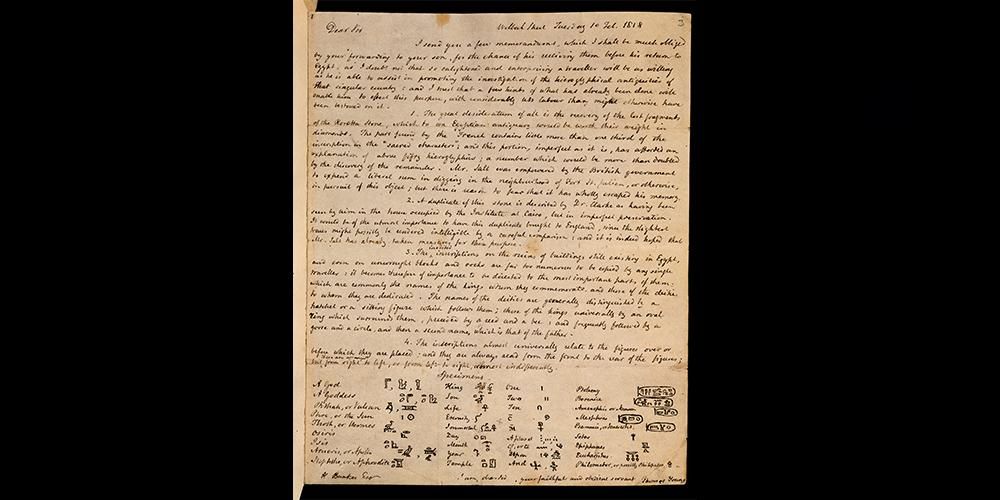 3
Welbeck Street Tuesday 10 Feb. 1818
Dear Sir
I send you a few memorandums, which I shall be much obliged
by your forwarding to your son, for the chance of his receiving them before his return to
Egypt; as I doubt not that so enlightened and enterprising a traveller will be as willing
as he is able to assist in promoting the investigation of the hieroglyphical antiquities of
that singular country: and I trust that a few hints of what has already been done will
enable him to effect this purpose, with considerably less labour than might otherwise have
been bestowed on it.
1. The great desideratum of all is the recovery of the lost fragments
of the Rosetta Stone, which to an Egyptian antiquary would be worth their weight in
diamonds. The part found by the French contains little more than one third of the
inscription in the "sacred characters"; and this portion, imperfect as it is, has afforded an
explanation of above fifty hieroglyphics; a number which would be more than doubled
by the discovery of the remainder. Mr. Salt was empowered by the British government
to expend a liberal sum in digging in the neighbourhood of Fort St. Julien, or otherwise,
in pursuit of this object; but there is reason to fear that it has wholly escaped his memory.
2. A duplicate of this stone is described by Dr. Clarke as having been
seen by him in the house occupied by the Institute at Cairo, but in imperfect preservation.
It would be of the utmost importance to have this duplicate brought to England, since the slightest
traces might possibly be rendered intelligible by a careful comparison; and it is indeed hoped that
Mr. Salt has already taken measures for this purpose.
3. The inscriptions on the ruins of buildings still existing in Egypt,
and even on unwrought blocks and rocks are far too numerous to be copied by any single
traveller: it becomes therefore of importance to be directed to the most important parts of them:
which are commonly the names of the kings whom they commemorate, and those of the deities
to whom they are dedicated. The names of the deities are generally distinguished by a
hatchet or a sitting figure which follows them; those of the kings universally by an oval
ring which surrounds them, preceded by a reed and a bee; and frequently followed by a
goose and a circle, and then a second name, which is that of the father.
4. The inscriptions almost universally relate to the figures over or
before which they are placed; and they are always read from the front to the rear of the figures;
but from right to left, or from left to right, almost indifferently.
Specimens
A God King One Ptolemy
A Goddess Son Two Berenice
Phthah, or Vulcan Life Ten Amenophis or Memnon
Phre, or the Sun Eternity Mesphres
Thoth, or Hermes Immortal
Osiris Day A plural Sotes
Isis Month of, or to Epiphanes
Arueris, or Apollo Year Upon Eucharistus
Nephthe, or Aphrodite Temple And Philometor, or possibly Philopator
H. Bankes Esqr I am, dear Sir, your faithful and obedient servant Thomas Young